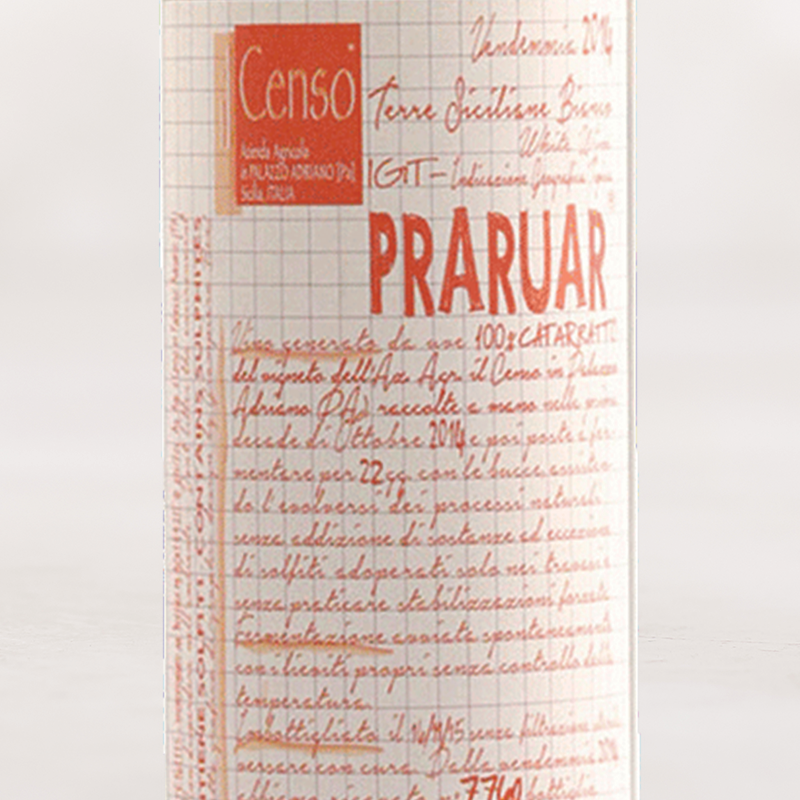 Censo
Azienda Agricola
in PALAZZO ADRIANO [Pa]
Sicilia, ITALIA
Vendemmia 2014
Terre Siciliane Bianco
White Wine
IGT - Indicazione Geografica
PRARUAR
Vino generato da uve 100% CATARRATTO
del vigneto dell'Az. Agr. il Censo in Palazzo
Adriano (PA) raccolte a mano nella prima
decade di Ottobre 2014 e poi poste a fer-
mentare per 22 gg. con le bucce assisten-
do l'evolversi dei processi naturali
senza addizione di sostanze ad eccezione
di solfiti adoperati solo nei travasi e
senza praticare stabilizzazioni forzate
Fermentazione avviata spontaneamente
con lieviti propri senza controllo della
temperatura.
Imbottigliato il 14/9/15 senza filtrazione
versare con cura. Dalla vendemmia 2014
abbiamo ricavato n° 7740 bottiglie
CONTIENE SOLFITI, CONTAINS SULPHITES